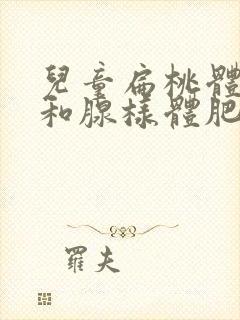 兒童扁桃體
和腺樣體肥
羅夫